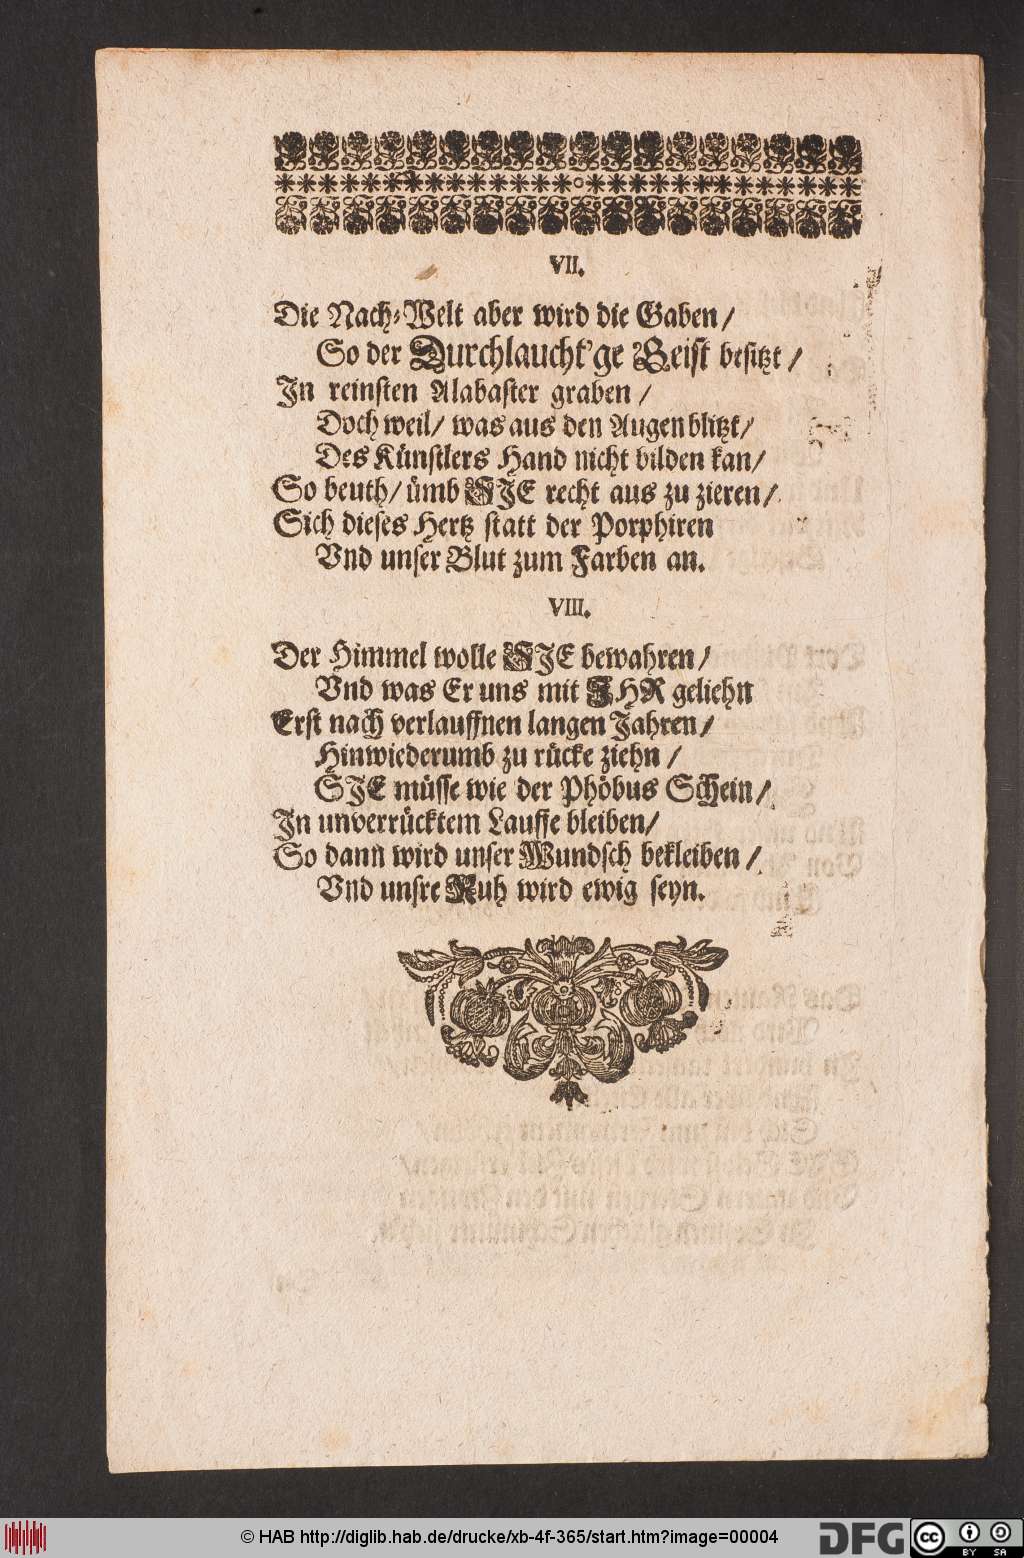 VII.
Die Nach-Welt aber wird die Gaben/
So der Durchlaucht'ge Geist besitzt/
In reinsten Alabaster graben/
Doch weil/ was aus den Augen blitzt/
Des Künstlers Hand nicht bilden kan/
So beuth/ ümb SIE recht aus zu zieren/
Sich dieses Hertz statt der Porphiren
Vnd unser Blut zum Farben an.
VIII.
Der Himmel wolle SIE bewahren/
Vnd was Er uns mit IHR geliehn
Erst nach verlauffnen langen Jahren/
Hinwiederumb zu rücke ziehn/
SIE müsse wie der Phöbus Schein/
In unverrücktem Lauffe bleiben/
So dann wird unser Wundsch bekleiben/
Vnd unsre Ruh wird ewig seyn.
© HAB http://diglib.hab.de/drucke/xb-4f-365/start.htm?image=00004
DFG
cc BY SA